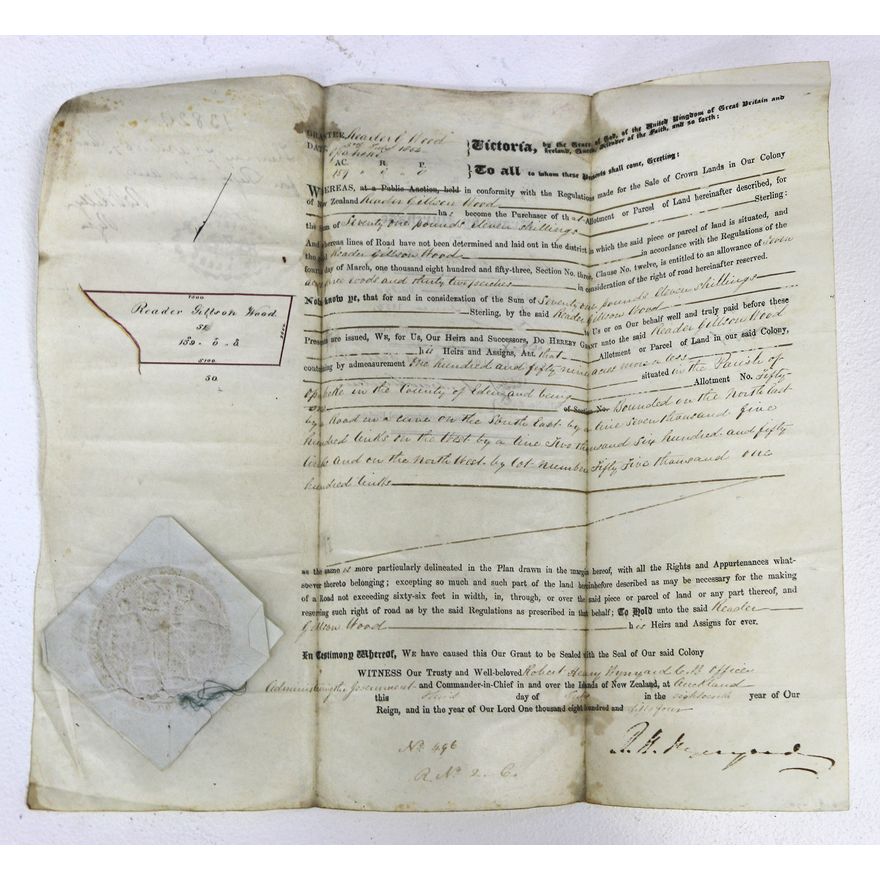 GRANTEE Reader G Wood
DATE
Opaheke
AC. R. P.
159 " 0 " 0
Victoria, by the Grace of God, of the United Kingdom of Great Britain and
Ireland, Queen, Defender of the Faith, and so forth:
To all to whom these Presents shall come, Greeting:
WHEREAS, at a Public Auction, held in conformity with the Regulations made for the Sale of Crown Lands in Our Colony
of New Zealand Reader Gillson Wood
has become the Purchaser of that Allotment or Parcel of Land hereinafter described, for
the sum of Seventy one pounds eleven shillings Sterling:
And whereas lines of Road have not been determined and laid out in the district in which the said piece or parcel is situated, and
the said Reader Gillson Wood in accordance with the Regulations of the
fourth day of March, one thousand eight hundred and fifty-three, Section No. three, Clause No. twelve, is entitled to an allowance of Seven
acres roods and thirty two perches in consideration of the right of road hereinafter reserved.
Now know ye, that for and in consideration of the Sum of Seventy one pounds eleven shillings
Sterling, by the said Reader Gillson Wood
to Us or on Our behalf well and truly paid before these
Presents are issued, WE, for Us, Our Heirs and Successors, DO HEREBY GRANT unto the said Reader Gillson Wood
his Heirs and Assigns, ALL that Allotment or Parcel of Land in our said Colony,
containing by admeasurement One hundred and fifty nine acres more or less
situated in the Parish of
Opaheke in the County of Eden and being Allotment No. Fifty
one of Section No. Bounded on the North East
by a Road in a curve on the South East by a line Seven thousand five
hundred links on the West by a line Two thousand Six hundred and fifty
links and on the North West by Lot number Fifty Five thousand one
hundred links
as the same is more particularly delineated in the Plan drawn in the margin hereof, with all the Rights and Appurtenances what-
soever thereto belonging; excepting so much and such part of the land hereinbefore described as may be necessary for the making
of a Road not exceeding sixty-six feet in width, in, through, or over the said piece or parcel of land or any part thereof, and
reserving such right of road as by the said Regulations as prescribed in that behalf; To Hold unto the said Reader
Gillson Wood his Heirs and Assigns for ever.
In Testimony Whereof, WE have caused this Our Grant to be Sealed with the Seal of Our said Colony
WITNESS Our Trusty and Well-beloved Robert Henry Wynyard C.B. Officer
Administering the Government and Commander-in-Chief in and over the Islands of New Zealand, at Auckland
this day of in the eighteenth year of Our
Reign, and in the year of Our Lord One thousand eight hundred and fifty four
R. H. Wynyard
No. 496
R. No. 2. C.
7500
Reader Gillson Wood
51
159 " 0 " 0
2650
5100
50.